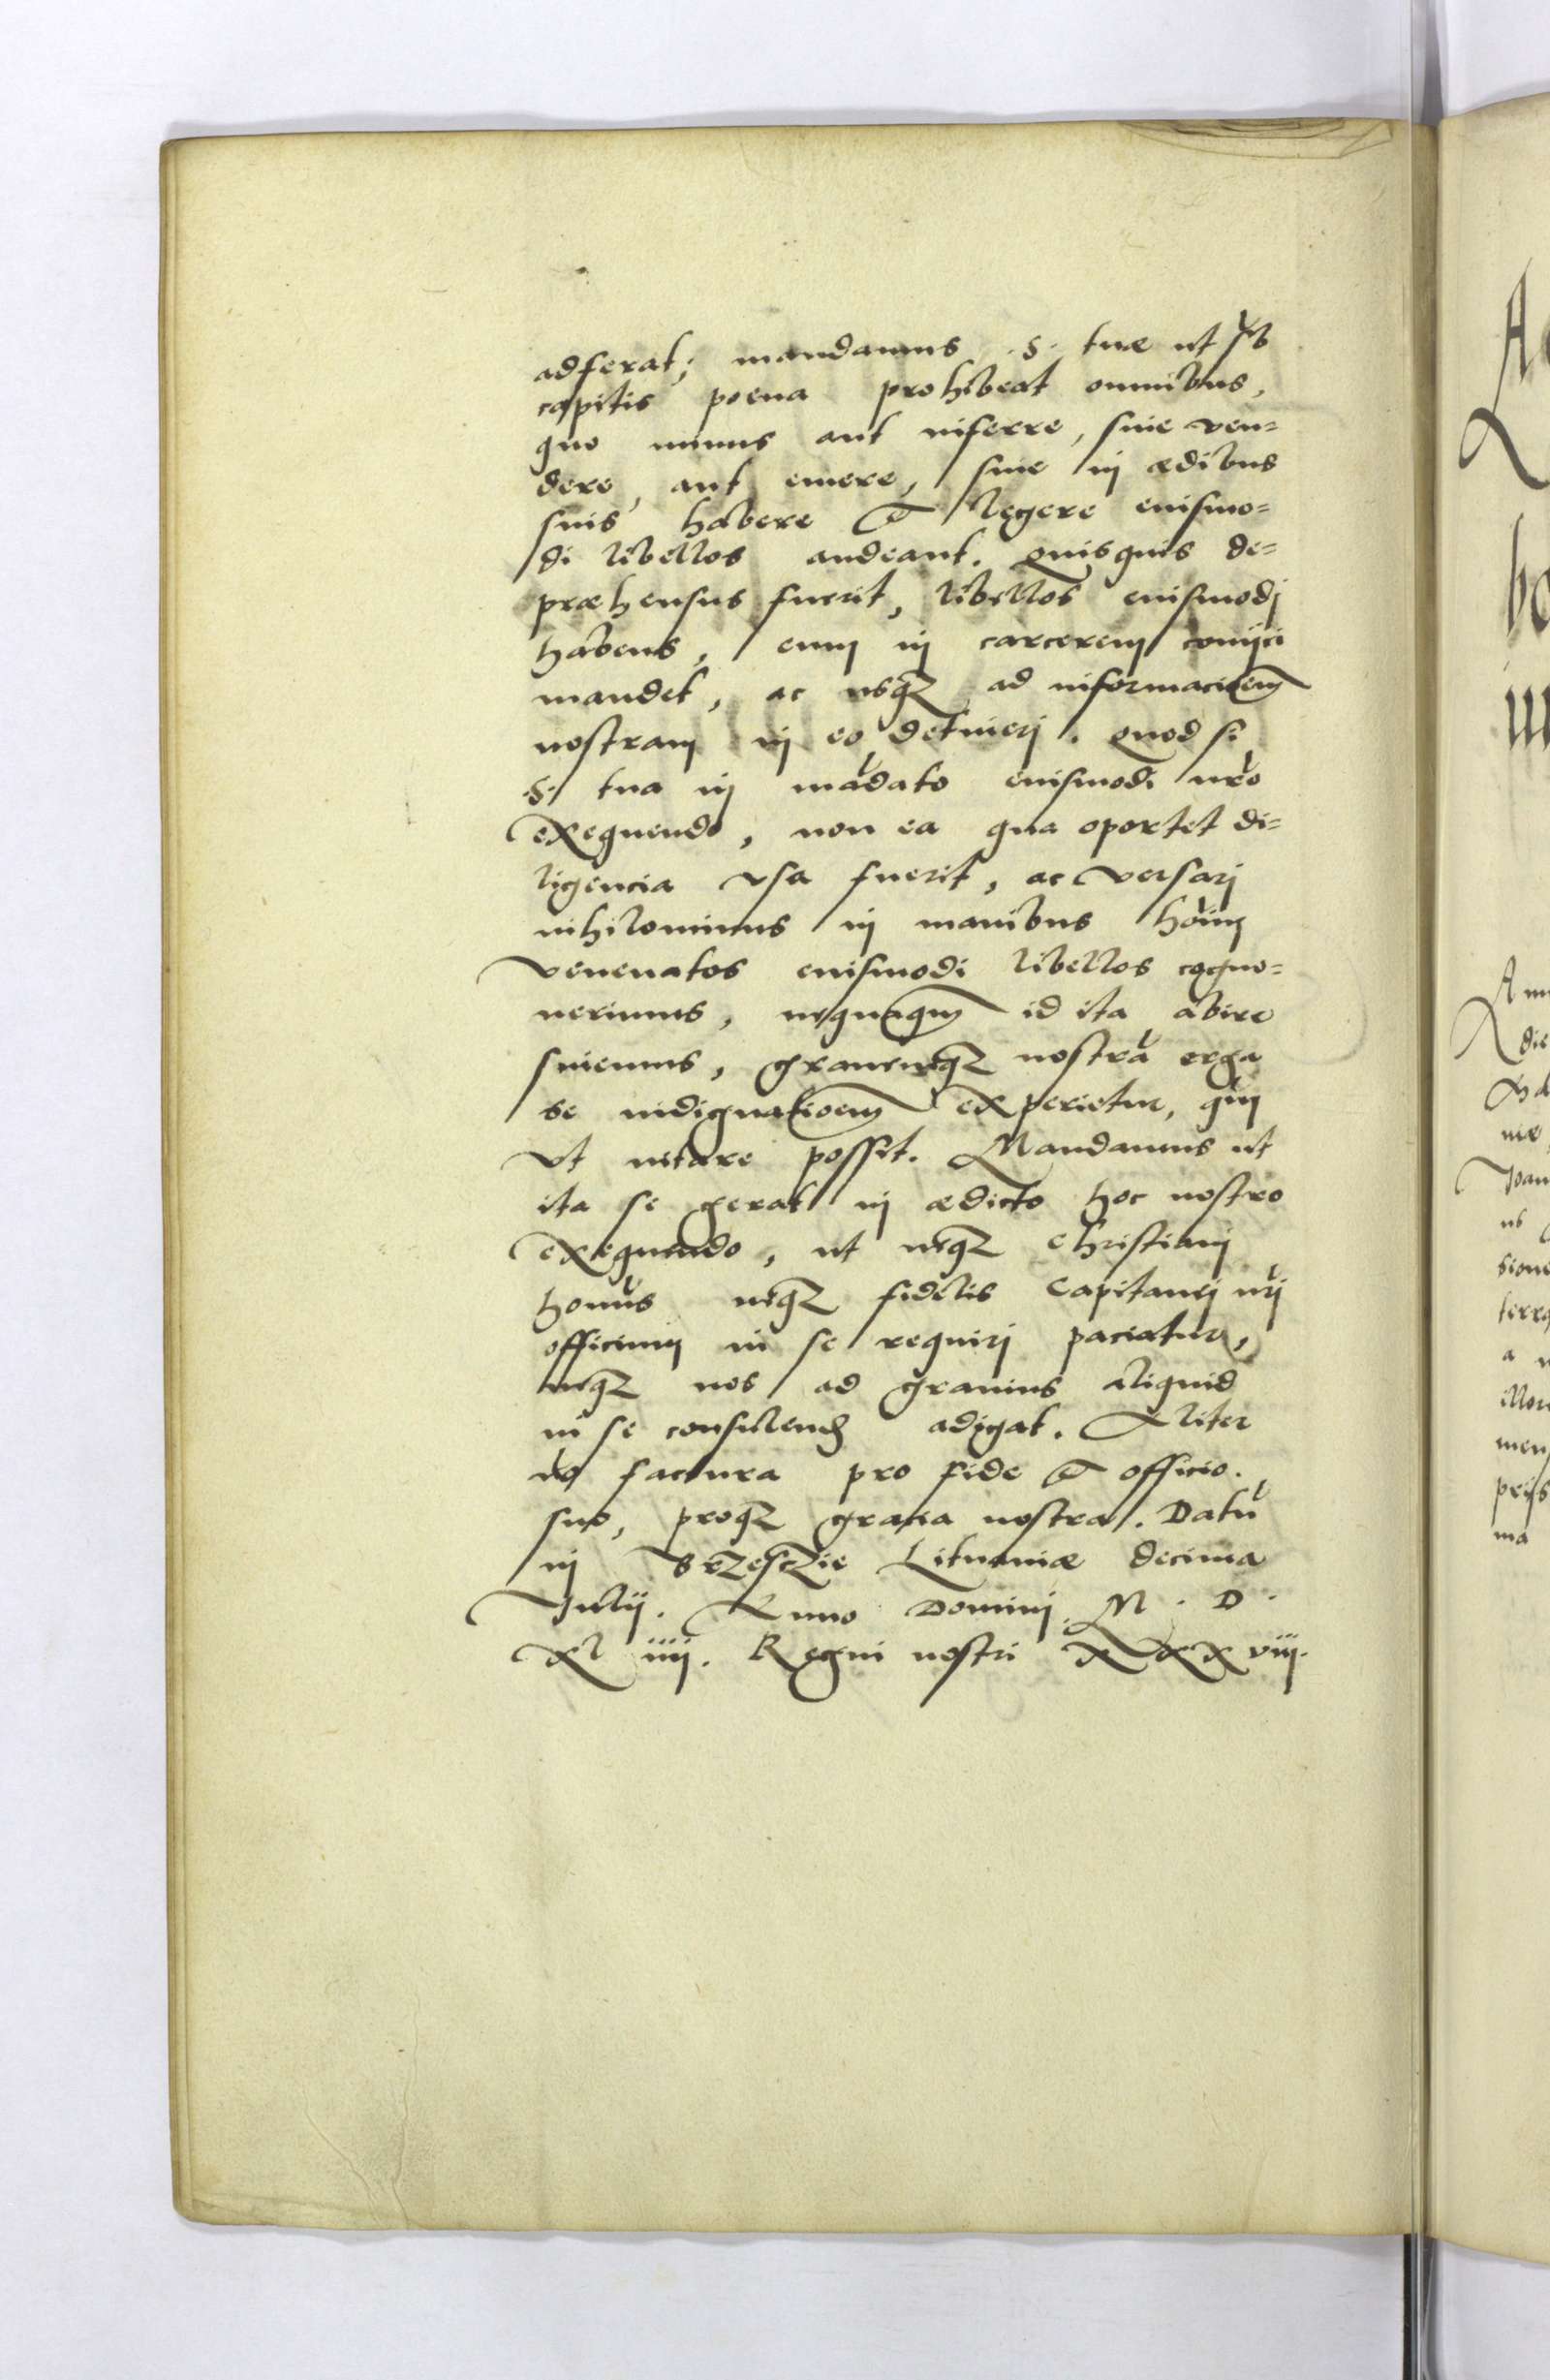 adferat; mandamus .S. tuæ ut sub
capitis poena prohibeat omnibus,
quo minus aut inferre, siue ven=
dere, aut emere, siue in ædibus
suis habere et legere euismo=
di libellos audeant. Quisquis de=
præhensus fuerit, libellos euismodi
habens, eum in carcerem conijci
mandet, ac usq ad informacioem
nostram in eo detineri. Quod si
.S. tua in mādato euismodi nr̄o
exequendo, non ea qua oportet di=
ligencia vsa fuerit, ac versari
nihilominus in manibus hoīm
venenatos euismodi libellos cogno=
uerimus, nequaqm̄ id ita abire
sinemus, grauemq nostrā erga
se indignatioem experietur, qm̄
vt uitare possit. Mandamus ut
ita se gerat in ædicto hoc nostro
exequendo, ut neq Christiani
homīs neq fidelis Capitanei nr̄i
officium in se requiri paciatur,
neq nos ad grauius aliquid
in se consulend adigat. Aliter
nō factura pro fide et officio
suo, proq gracia nostra. Datū
in Brzesczie Lituaniæ decima
Julij. Anno Domini. M. D.
XL iiij. Regni nostri XXXviij.